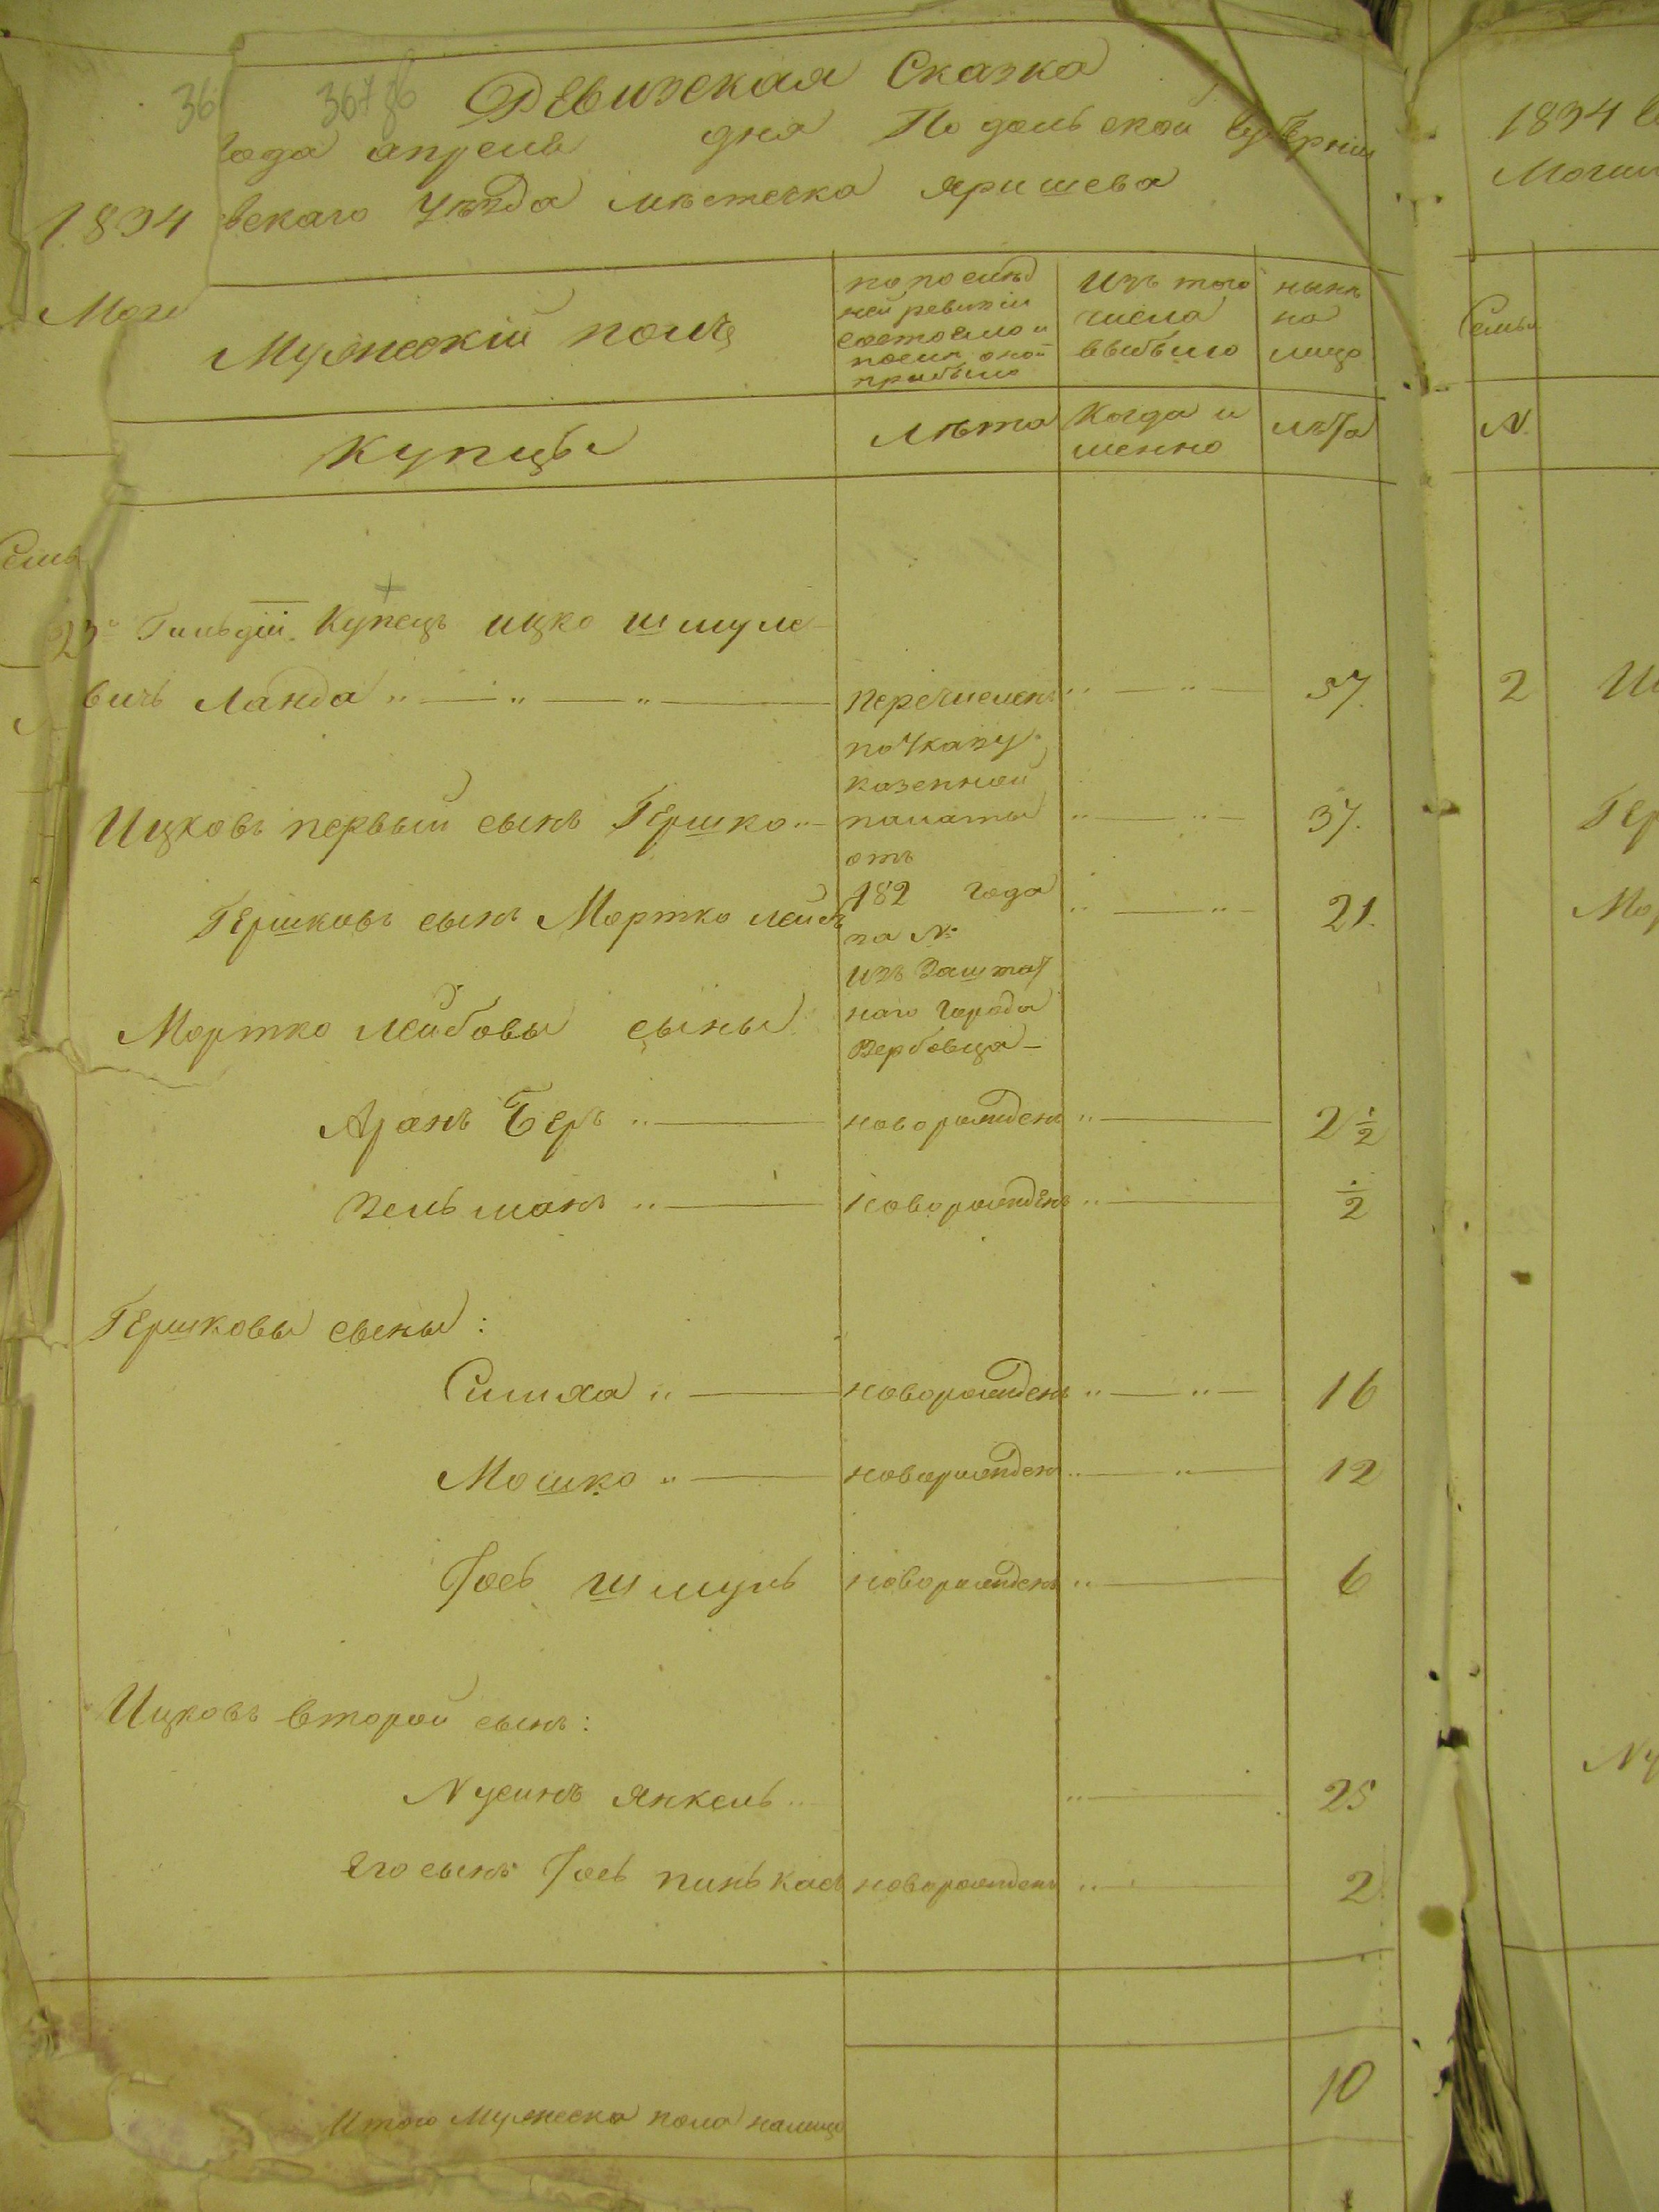 36 367 об
Ревизская Сказка
1834 года апреля дня Подольской Губерніи
Моги вскаго Уѣзда мѣстечка Яришева
1834
Семьи
Мужескій полъ
по послѣд
ней ревизіи
состояло и
послѣ оной
прибыло
Изъ того
числа
выбыло
нынѣ
на
лицо
Купцы
Лѣта
Когда и
менно
лѣта
N
3й Гильдіи Купецъ Ицко Шмуле
вичъ Ланда
перечисленъ
по Указу
казенной
палаты
отъ
182 года
за №
изъ Заштат
наго города
Вербовца
57.
2
Ицковъ первый сынъ Гершко
37.
Гершковъ сынъ Мортко Лейбъ
21.
Мортко Лейбовы сыны
Аранъ Беръ новорожденъ 2 1/2
Зельманъ новорожденъ 1/2
Гершковы сыны:
Симха новорожденъ 16
Мошко новорожденъ 12
Іось Шмуль новорожденъ 6
Ицковъ второй сынъ:
Нусинъ Янкель 25
Его сынъ Іось Пинькасъ новорожденъ 2
Итого Мужеска пола налицо 10